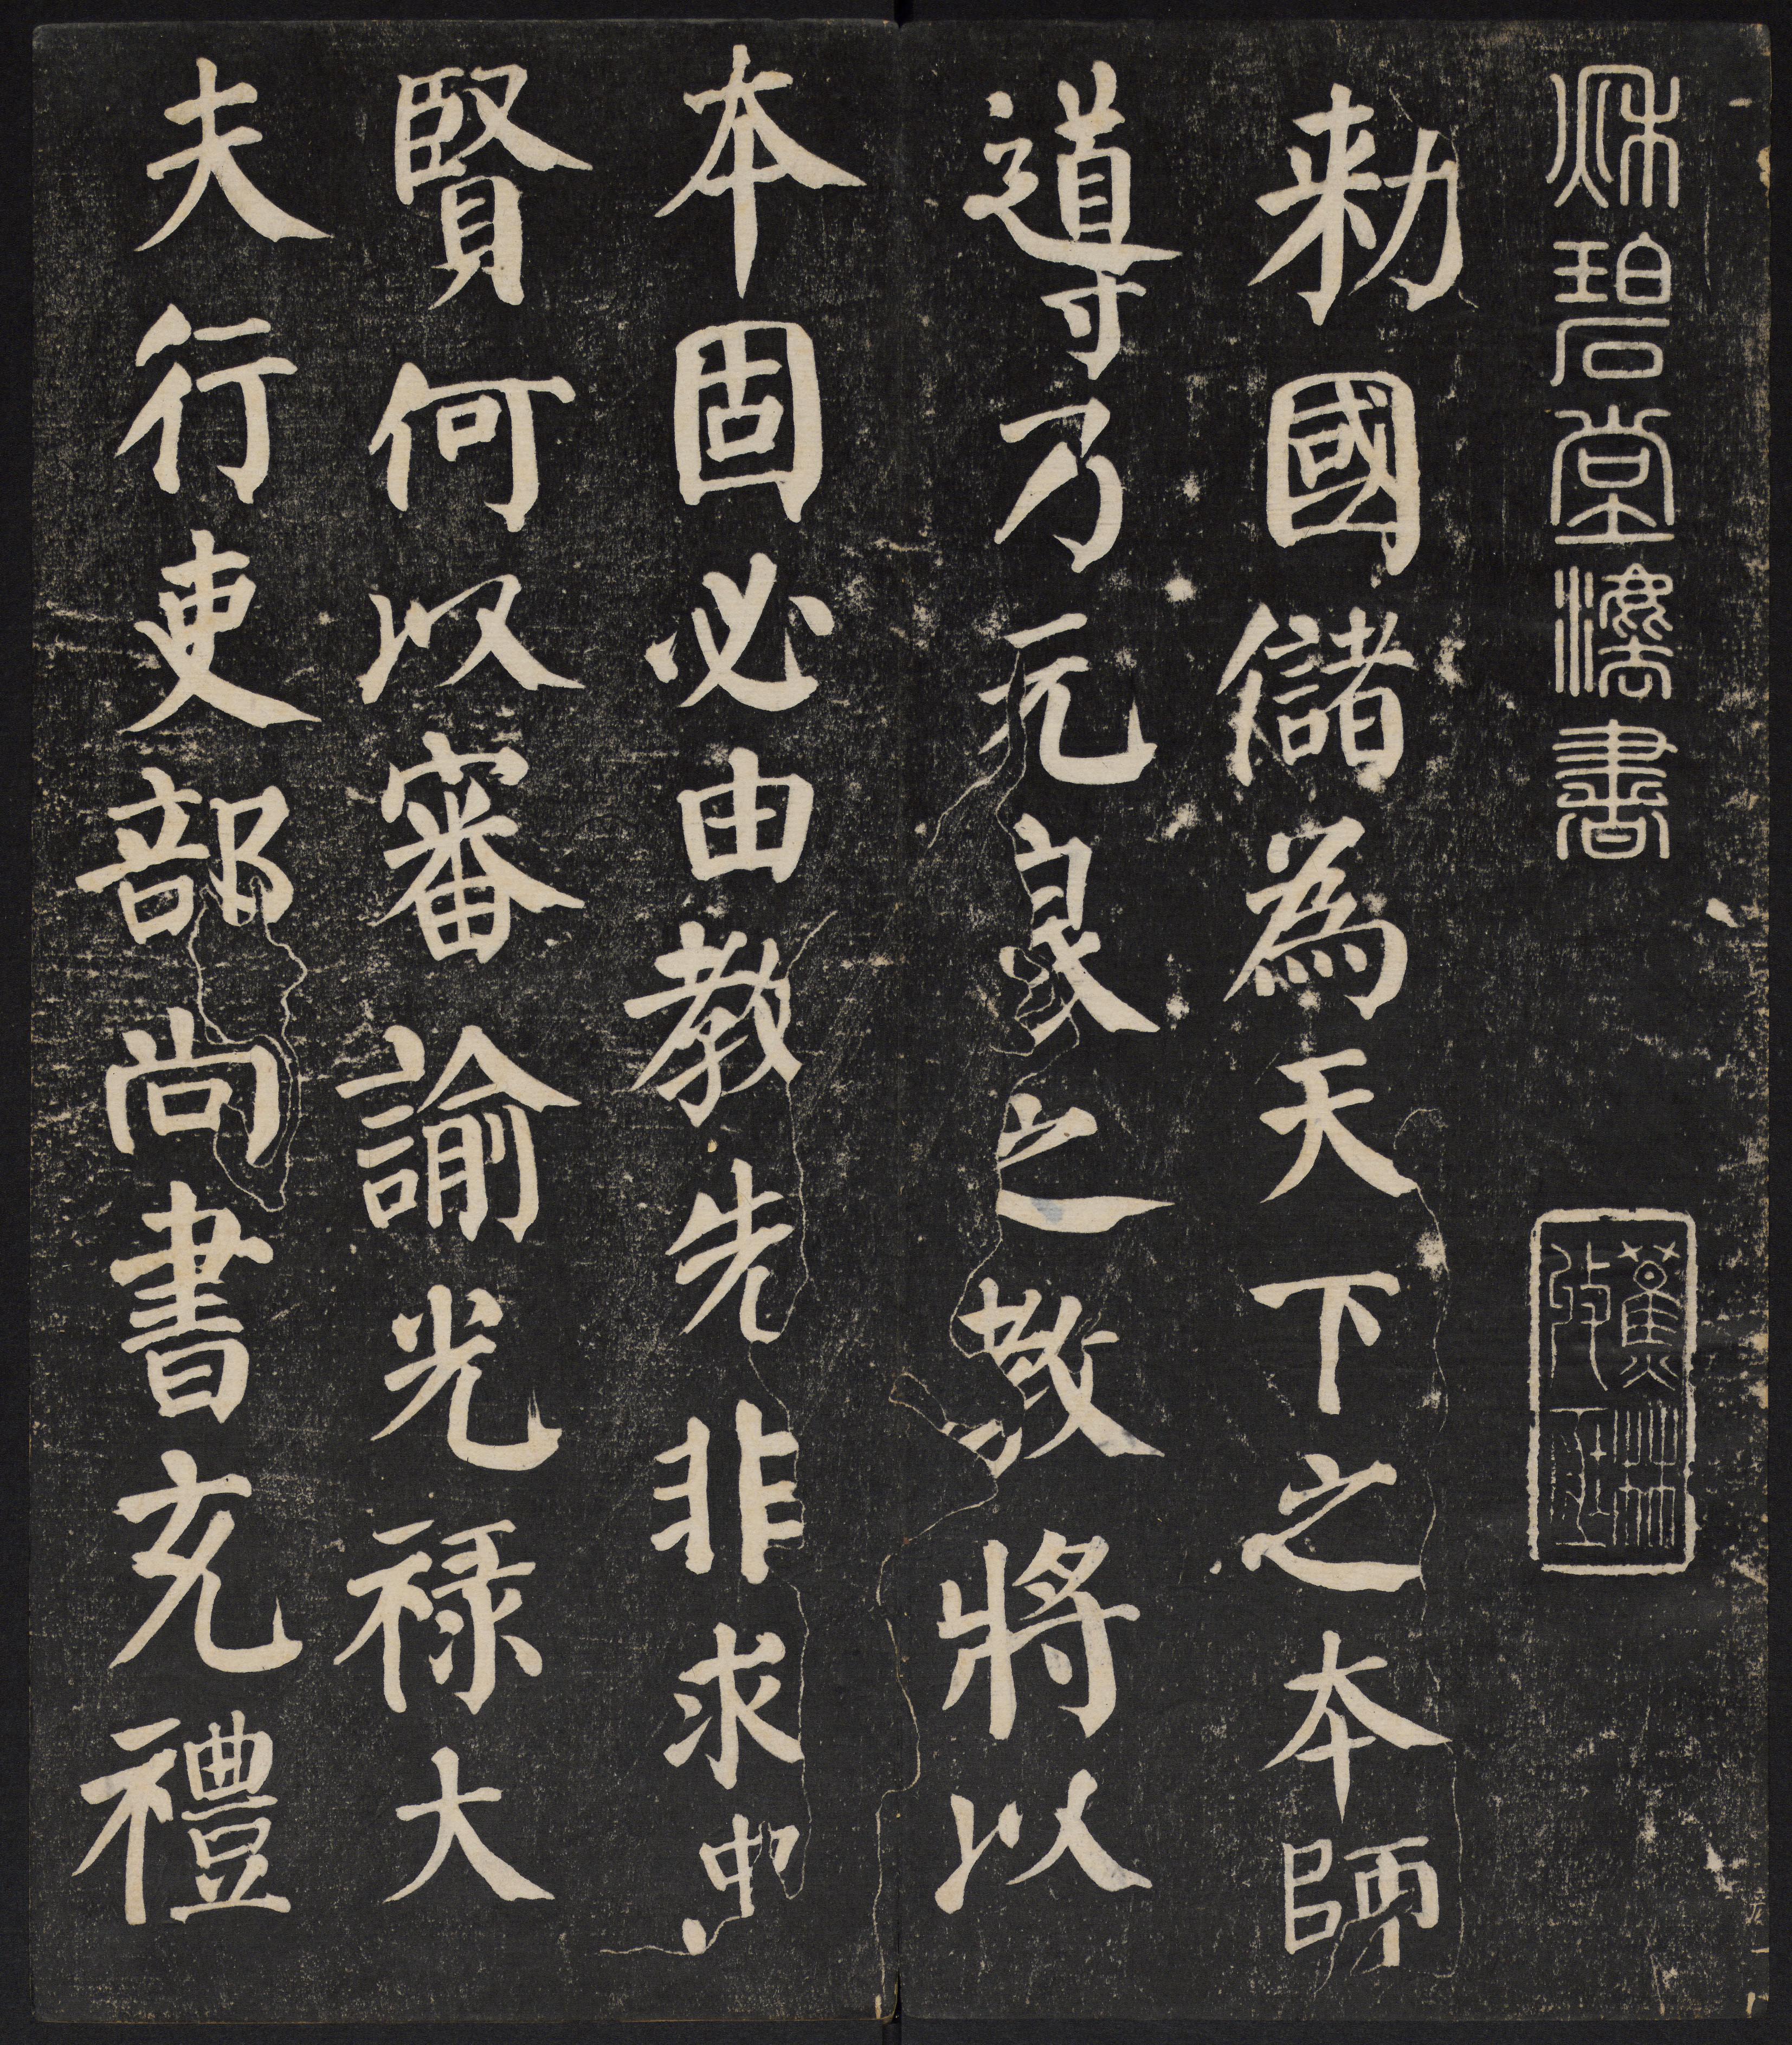 秋碧堂灋書
蕉林
勑國儲為天下之本師
導乃元良之教將以
本固必由教先非求忠
賢何以審諭光祿大
夫行吏部尚書充禮